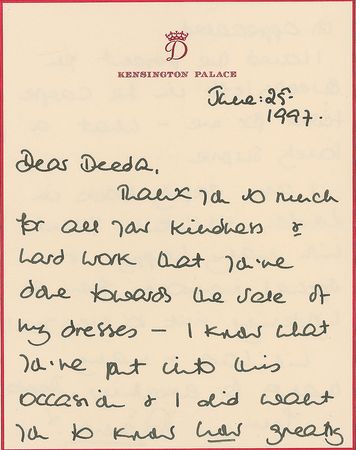 D
KENSINGTON PALACE
June: 25.
1997.
Dear Deeda,
Thank you so much
for all your kindness &
hard work that you've
done towards the sale of
my dresses – I know what
you've put into this
occasion & I did want
you to know how greatly